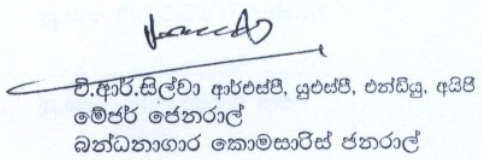 වී.ආර්.සිල්වා ආර්එස්පී, යූඑස්පී, එන්ඩියු, අයිජී
මේජර් ජෙනරාල්
බන්ධනාගාර කොමසාරිස් ජනරාල්